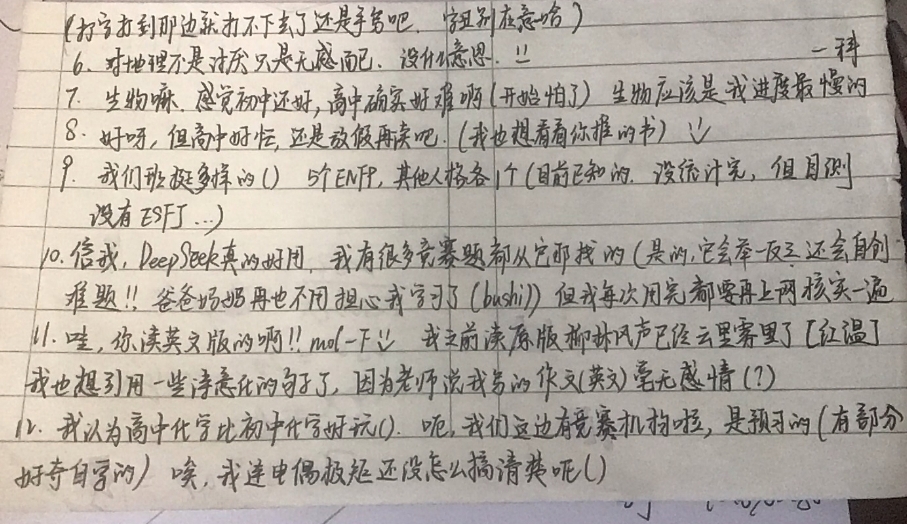 (打字打到那边就打不下去了还是手写吧. 字丑别在意哈)
6. 对地理不是讨厌只是无感而已. 没什么意思. !!
7. 生物嘛. 感觉初中还好, 高中确实好难啊(开始怕了) 生物应该是我进度最慢的一科
8. 好呀, 但高中好忙, 还是放假再读吧. (我也想看看你推的书)
9. 我们班挺多样的() 5个ENFP, 其他人格各1个(目前已知的. 没统计完, 但目测
没有ESFJ...)
10. 信我, DeepSeek真的好用. 我有很多竞赛题都从它那找的(是的, 它会举一反三还会自创
难题!! 爸爸妈妈再也不用担心我学习了(bushi)) 但我每次用完都要再上网核实一遍
11. 哇, 你读英文版的啊!! mo一下 我之前读原版柳林风声已经云里雾里了[红温]
我也想引用一些诗意化的句子了, 因为老师说我写的作文(英文)毫无感情(?)
12. 我认为高中化学比初中化学好玩(). 呃, 我们这边有竞赛机构啦, 是预习的(有部分
好奇自学的) 唉, 我连电偶极矩还没怎么搞清楚呢()